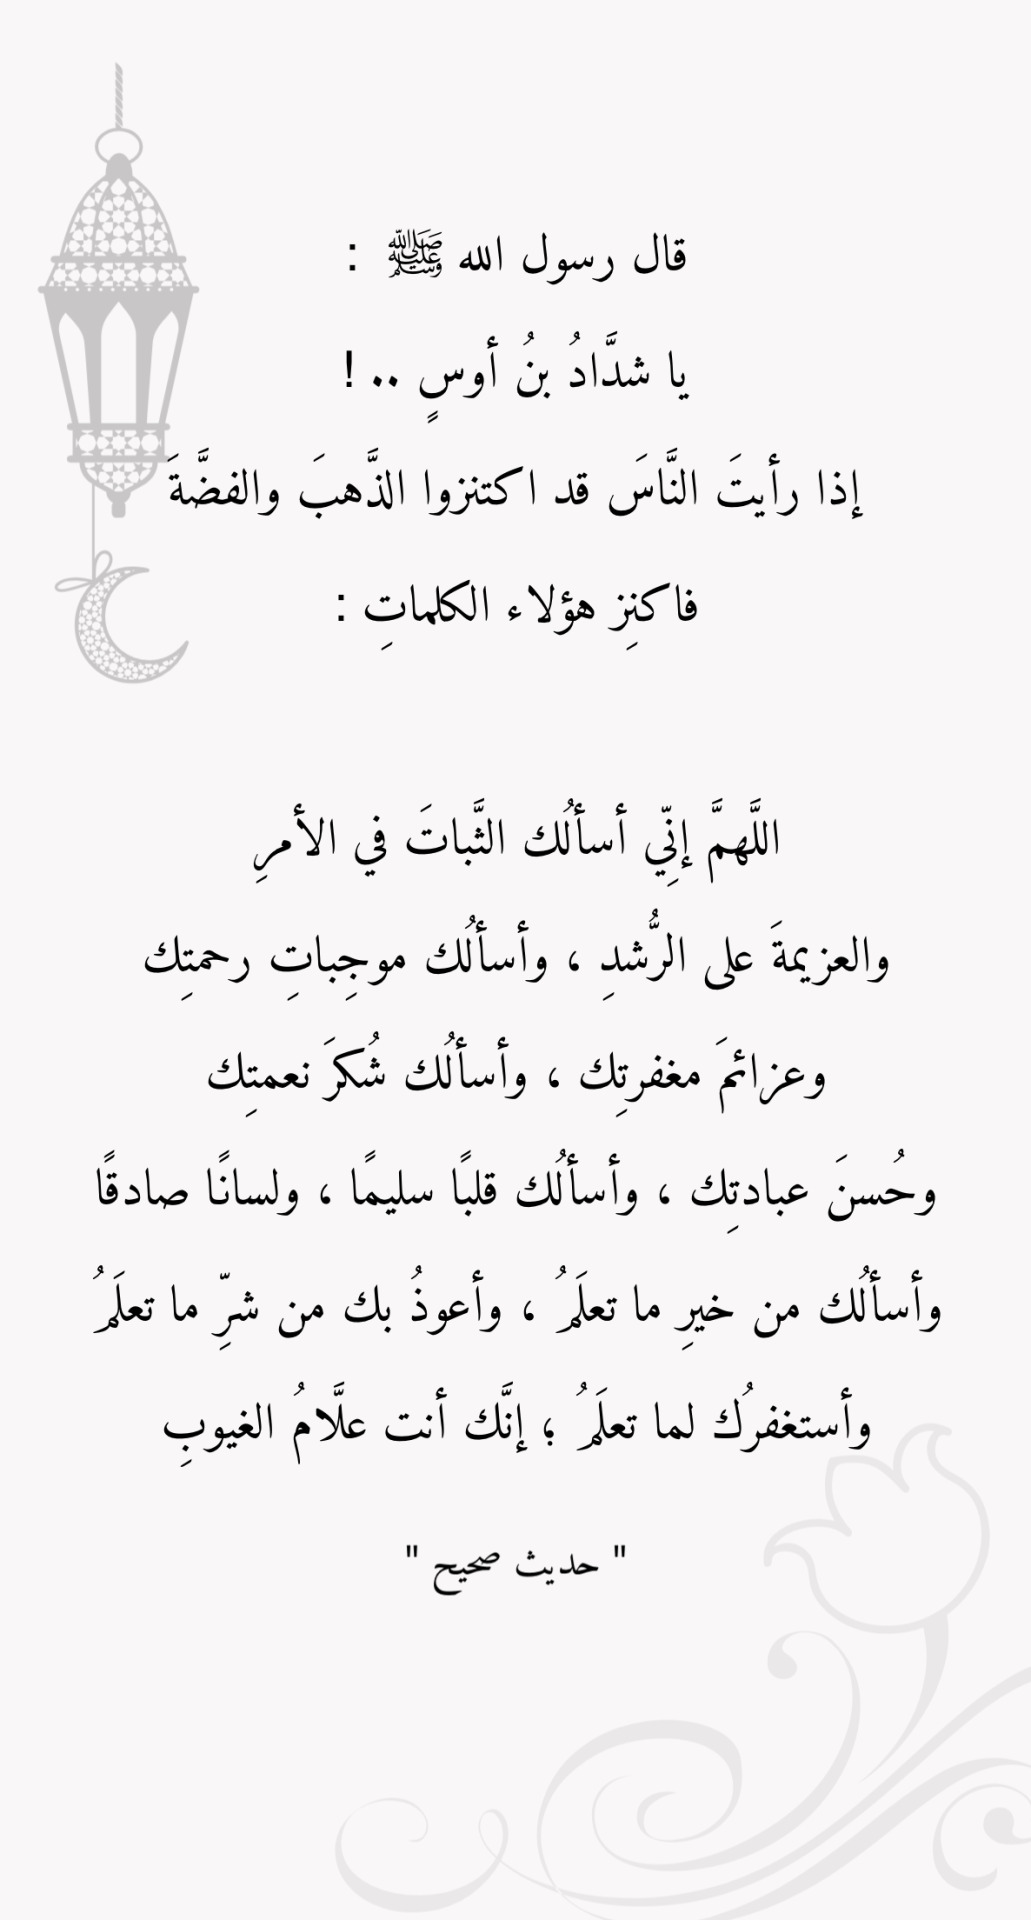 قال رسول الله ﷺ :
يا شدَّادُ بنُ أوسٍ .. !
إذا رأيتَ النَّاسَ قد اكتنزوا الذَّهبَ والفضَّةَ
فاكنِز هؤلاء الكلماتِ :
اللَّهمَّ إنِّي أسألُك الثَّباتَ في الأمرِ
والعزيمةَ على الرُّشدِ ، وأسألُك موجِباتِ رحمتِك
وعزائمَ مغفرتِك ، وأسألُك شُكرَ نعمتِك
وحُسنَ عبادتِك ، وأسألُك قلبًا سليمًا ، ولسانًا صادقًا
وأسألُك من خيرِ ما تعلَمُ ، وأعوذُ بك من شرِّ ما تعلَمُ
وأستغفرُك لما تعلَمُ ؛ إنَّك أنت علَّامُ الغيوبِ
" حديث صحيح "